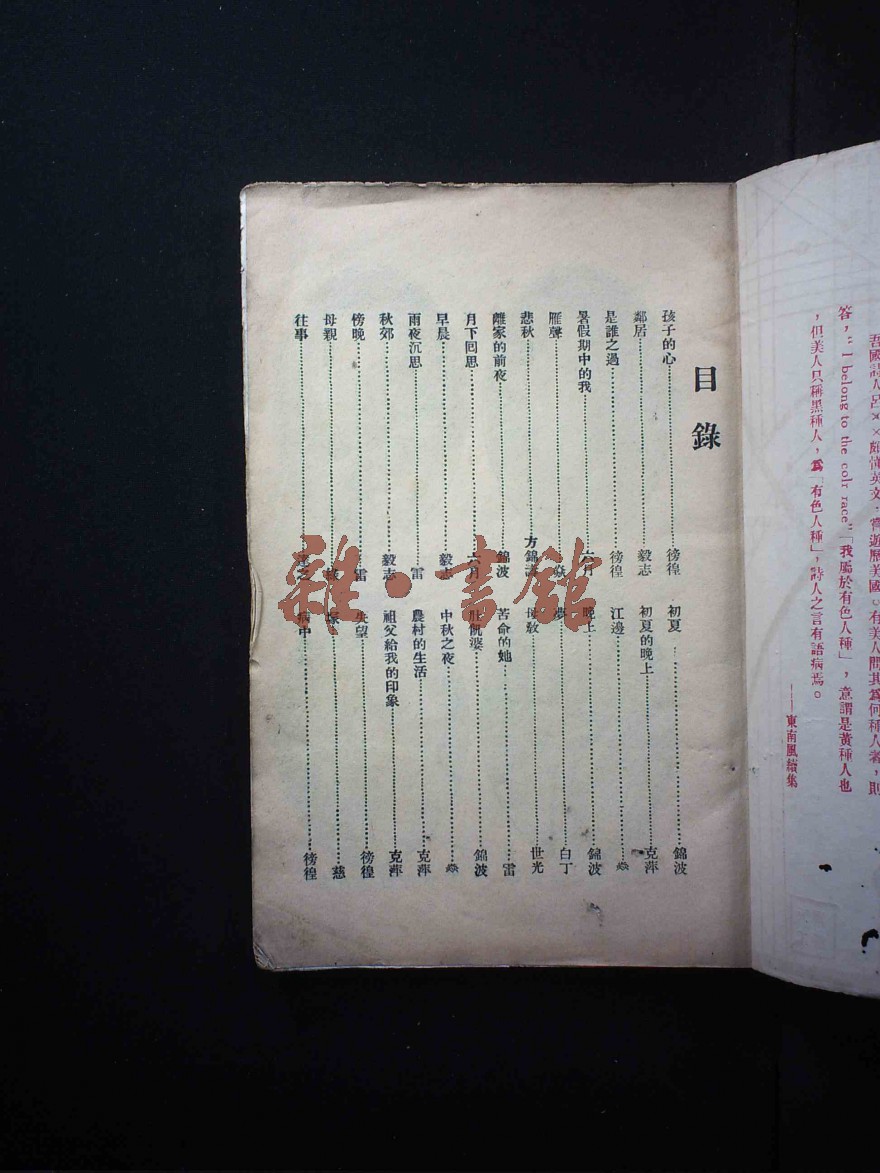 吾國詩人呂××頗懂英文，嘗遊歷美國。有美人問其爲何種人者，則
答，“I belong to the colr race”「我屬於有色人種」，意謂是黃種人也
，但美人只稱黑種人，爲「有色人種」，詩人之言有語病焉。
——東南風續集
目錄
孩子的心 徬徨 初夏 錦波
鄰居 毅志 初夏的晚上 克萍
是誰之過 徬徨 江邊 焱
暑假期中的我 六月 晚上 錦波
雁聲 焱 夢 白丁
悲秋 方錦 母敎 世光
離家的前夜 錦波 苦命的她 雷
月下囘思 六月 肚飢婆 錦波
早晨 毅志 中秋之夜 焱
雨夜沉思 雷 農村的生活 克萍
秋郊 毅志 祖父給我的印象 克萍
傍晚 雷 失望 徬徨
母親 慈
往事 之 病中 徬徨
雜·書館